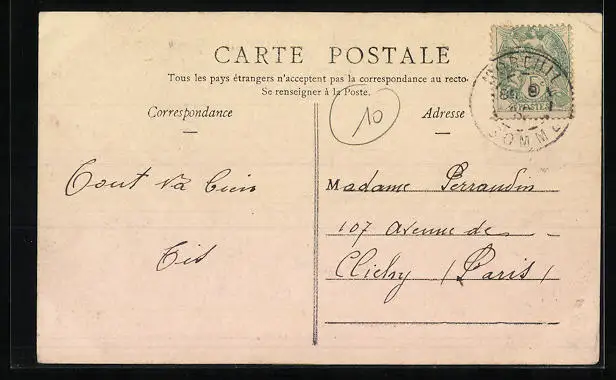 CARTE POSTALE
Tous les pays étrangers n'acceptent pas la correspondance au recto.
Se renseigner à la Poste.
Correspondance
10
Adresse
SOMME
Tout va bien
Madame Perraudin
107 avenue de
Clichy (Paris)